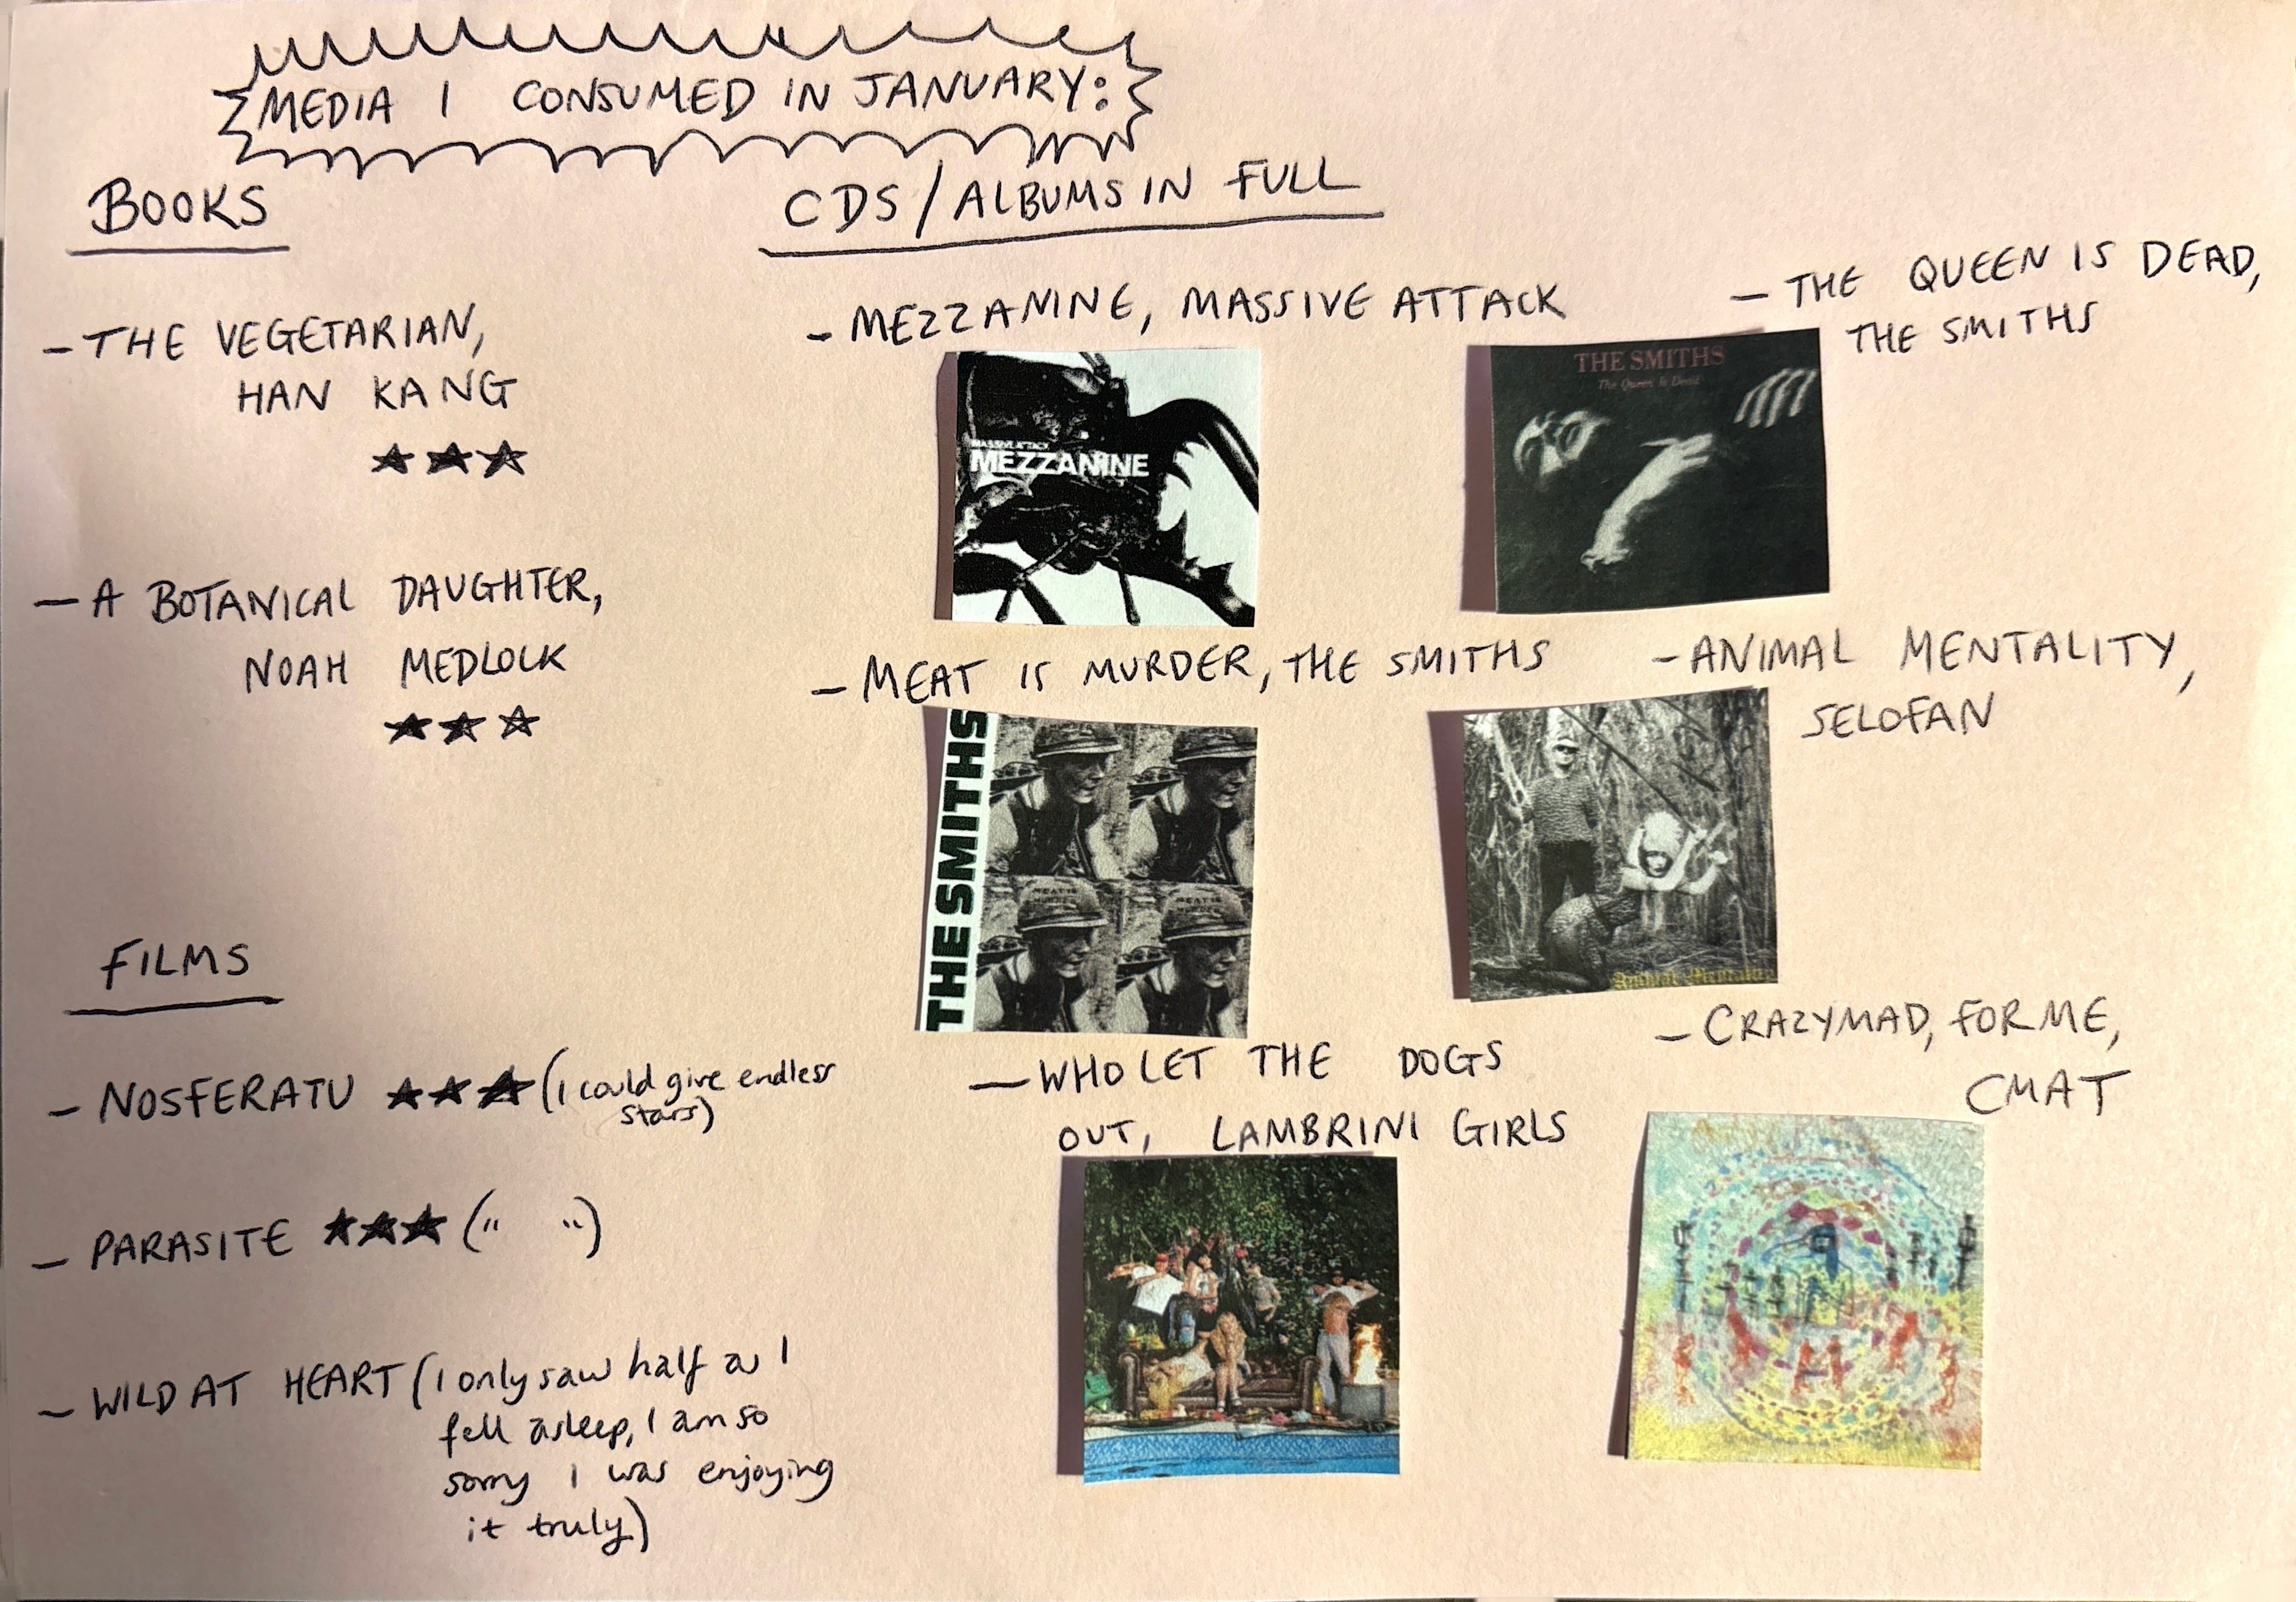 MEDIA I CONSUMED IN JANUARY:
BOOKS
- THE VEGETARIAN,
HAN KANG
★★★
- A BOTANICAL DAUGHTER,
NOAH MEDLOCK
★★☆
FILMS
- NOSFERATU ★★★ (I could give endless
stars)
- PARASITE ★★★ (" ")
- WILD AT HEART (I only saw half as I
fell asleep, I am so
sorry I was enjoying
it truly)
CDS / ALBUMS IN FULL
- MEZZANINE, MASSIVE ATTACK
MASSIVE ATTACK
MEZZANINE
- THE QUEEN IS DEAD,
THE SMITHS
THE SMITHS
The Queen Is Dead
- MEAT IS MURDER, THE SMITHS
THE SMITHS
MEAT IS
MURDER
MEAT IS
MURDER
- ANIMAL MENTALITY,
SELOFAN
Animal Mentality
- WHO LET THE DOGS
OUT, LAMBRINI GIRLS
- CRAZYMAD, FOR ME,
CMAT